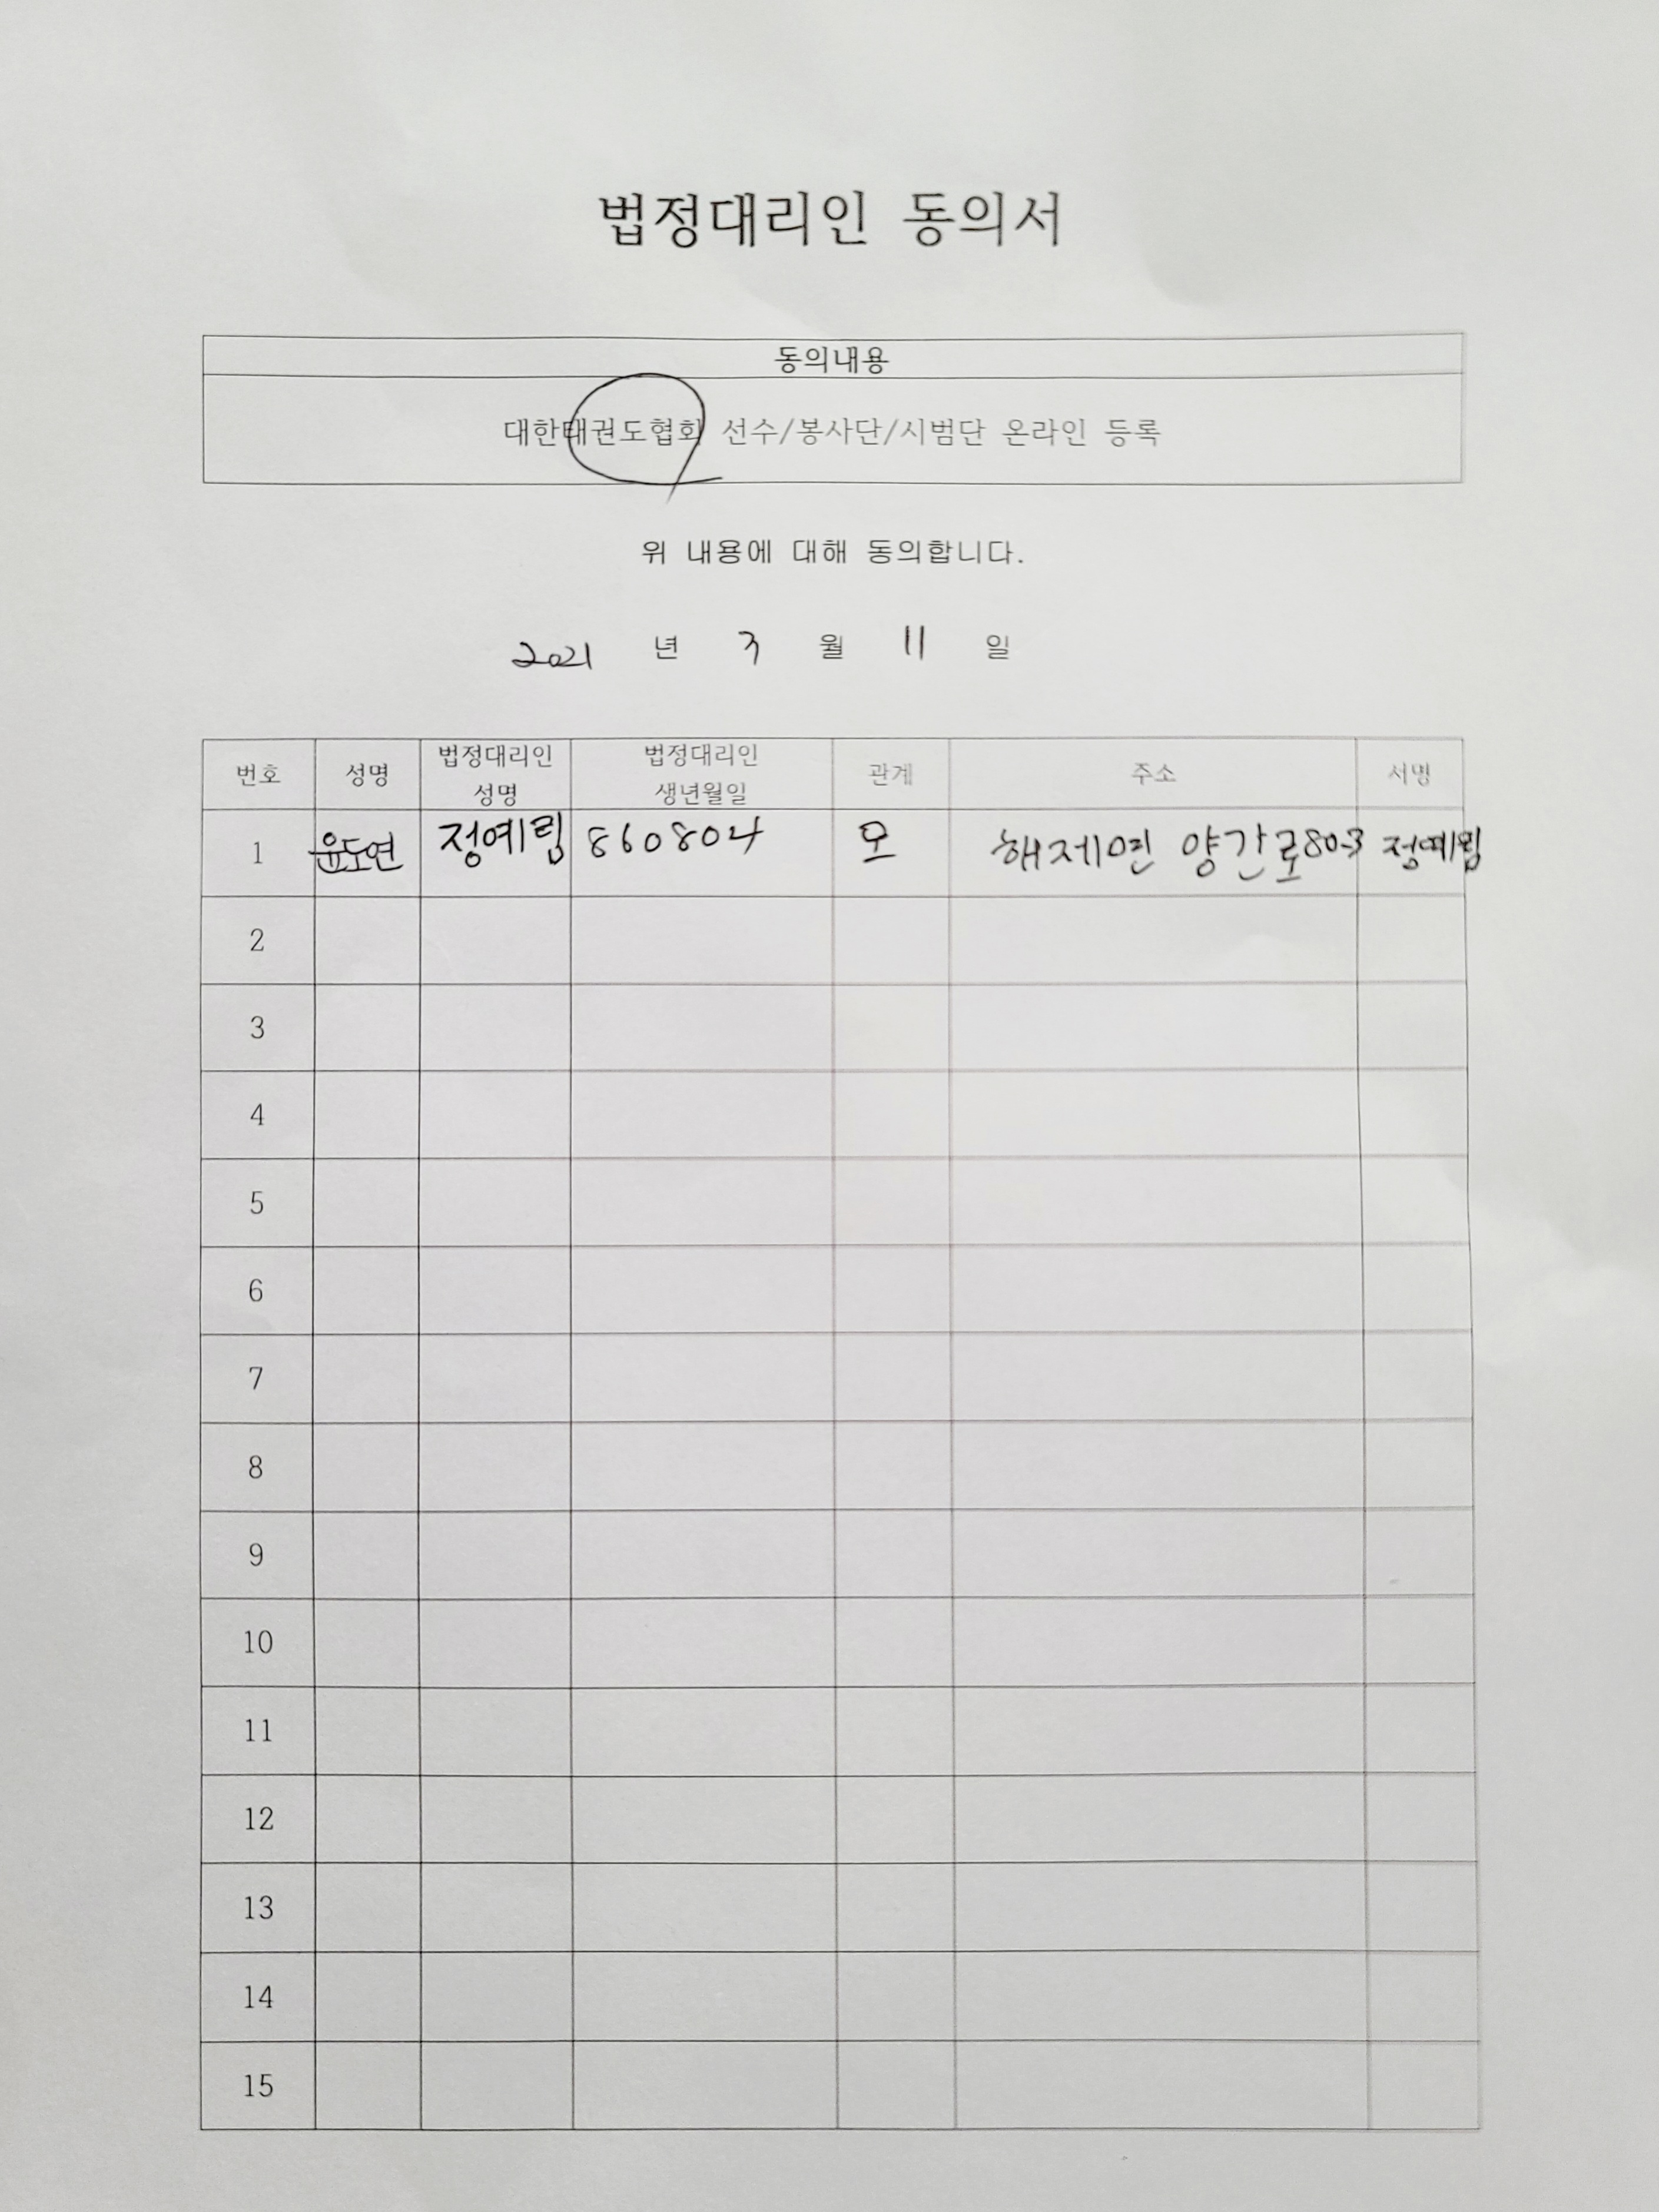 법정대리인 동의서
동의내용
대한태권도협회 선수/봉사단/시범단 온라인 등록
위 내용에 대해 동의합니다.
2021 년 3 월 11 일
번호 성명 법정대리인 성명 법정대리인 생년월일 관계 주소 서명
1 윤도연 정예림 860804 모 해제면 양간로80-3 정예림
2
3
4
5
6
7
8
9
10
11
12
13
14
15